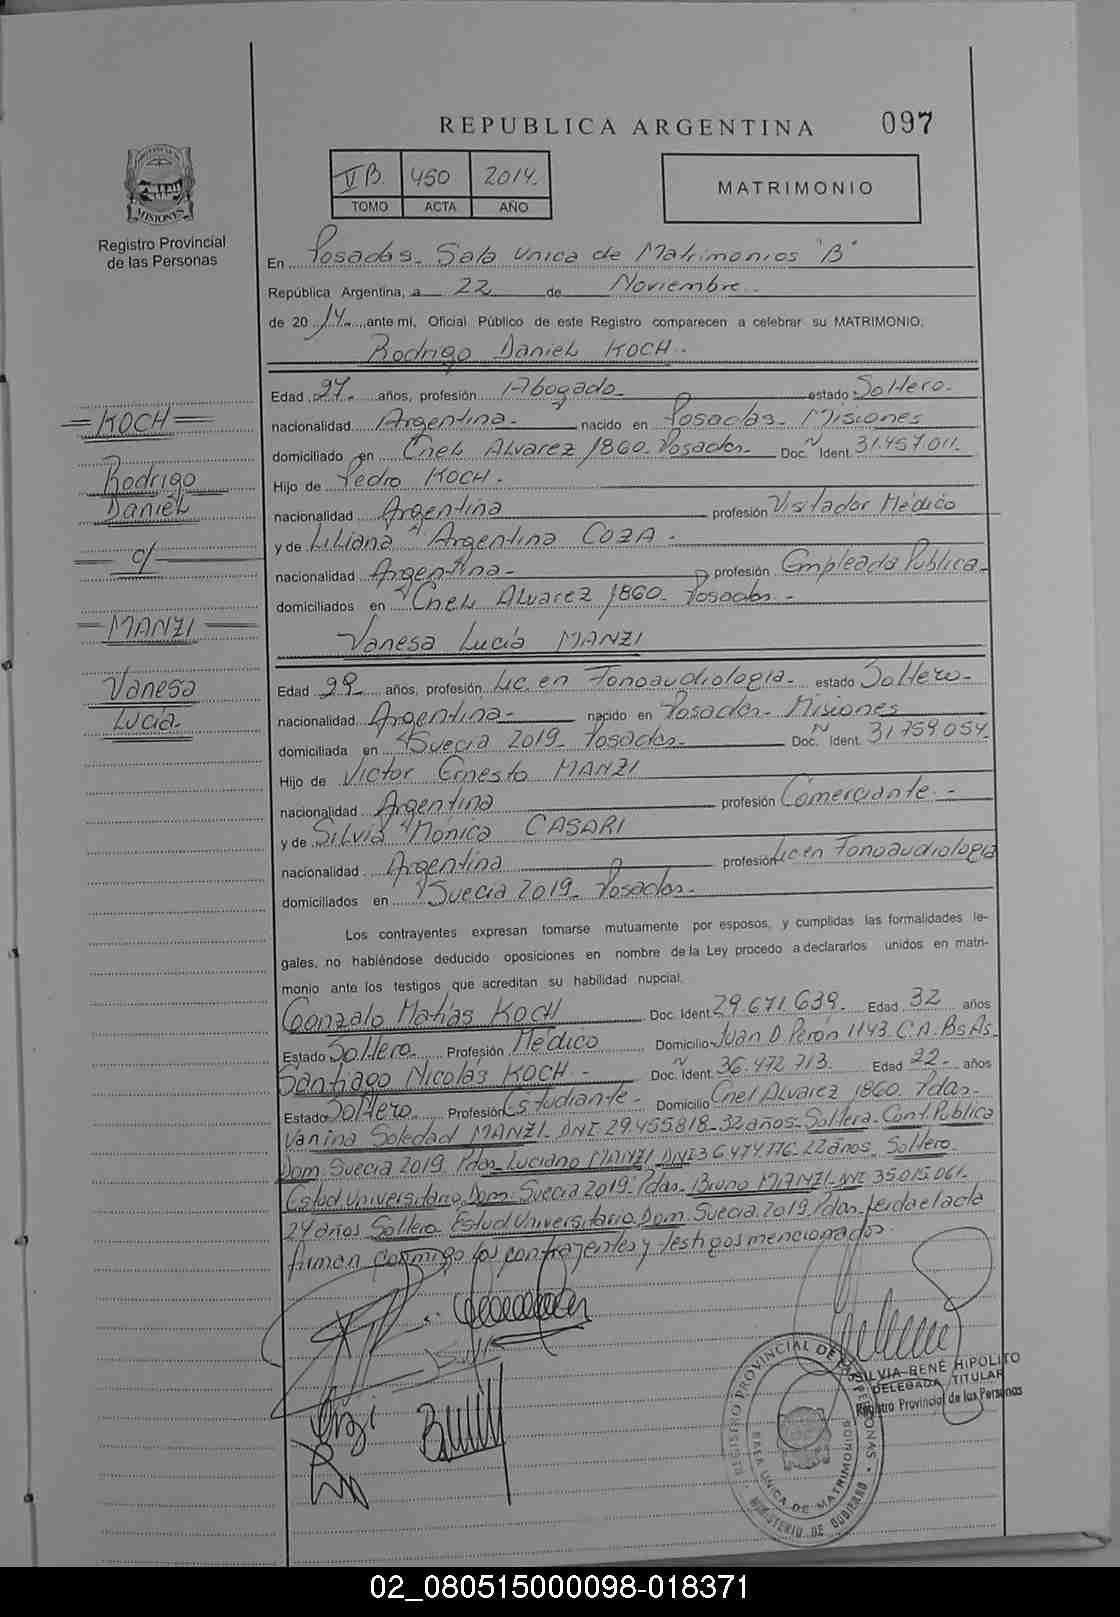 REPUBLICA ARGENTINA 097
V B. 450 2014.
TOMO ACTA AÑO
MATRIMONIO
MISIONES
Registro Provincial
de las Personas
En Posadas. Sala Unica de Matrimonios "B"
República Argentina, a 22 de Noviembre.
de 20 14 ante mi, Oficial Público de este Registro comparecen a celebrar su MATRIMONIO.
Rodrigo Daniel KOCH.
Edad 29. años, profesión Abogado estado Soltero.
nacionalidad Argentina. nacido en Posadas. Misiones
domiciliado en Cnel Alvarez 1860. Posadas. Doc. Ident. 31.457.011.
Hijo de Pedro KOCH.
nacionalidad Argentina profesión Visitador Médico
y de Liliana Argentina COZA.
nacionalidad Argentina. profesión Empleada Publica.
domiciliados en Cnel Alvarez 1860. Posadas.
Vanesa Lucía MANZI
Edad 29 años, profesión Lic. en Fonoaudiologia. estado Soltero.
nacionalidad Argentina. nacido en Posadas. Misiones
domiciliada en Suecia 2019. Posadas. Doc. Ident. 31.759.054.
Hijo de Victor Ernesto MANZI
nacionalidad Argentina profesión Comerciante.
y de Silvia Mónica CASARI
nacionalidad Argentina profesión Lic en Fonoaudiologia
domiciliados en Suecia 2019. Posadas.
Los contrayentes expresan tomarse mutuamente por esposos, y cumplidas las formalidades le-
gales, no habiéndose deducido oposiciones en nombre de la Ley procedo a declararlos unidos en matri-
monio ante los testigos que acreditan su habilidad nupcial.
Gonzalo Matías KOCH Doc. Ident. 29.671.639. Edad 32 años
Estado Soltero. Profesión Médico Domicilio Juan D Peron 1143 C.A. Bs As.
Santiago Nicolás KOCH. Doc. Ident. 36.472.713. Edad 22. años
Estado Soltero. Profesión Estudiante. Domicilio Cnel Alvarez 1860. Pdas.
Vanina Soledad MANZI. DNI 29.455.818. 32 años. Soltera. Cont. Publica
Dom. Suecia 2019. Pdas. Luciano MANZI. DNI 36.474.776. 22 años. Soltero.
Estud Universitario. Dom. Suecia 2019. Pdas. Bruno MANZI. DNI 35.015.061.
24 años. Soltero. Estud Universitario. Dom. Suecia. 2019. Pdas. Leida el acta
firman conmigo los contrayentes y testigos mencionados.
= KOCH =
Rodrigo
Daniel
c/
= MANZI =
Vanesa
Lucía.
SILVIA RENE HIPOLITO
DELEGADA TITULAR
Registro Provincial de las Personas
REGISTRO PROVINCIAL DE LAS PERSONAS
SALA UNICA DE MATRIMONIOS
MINISTERIO DE GOBIERNO
02_080515000098-018371